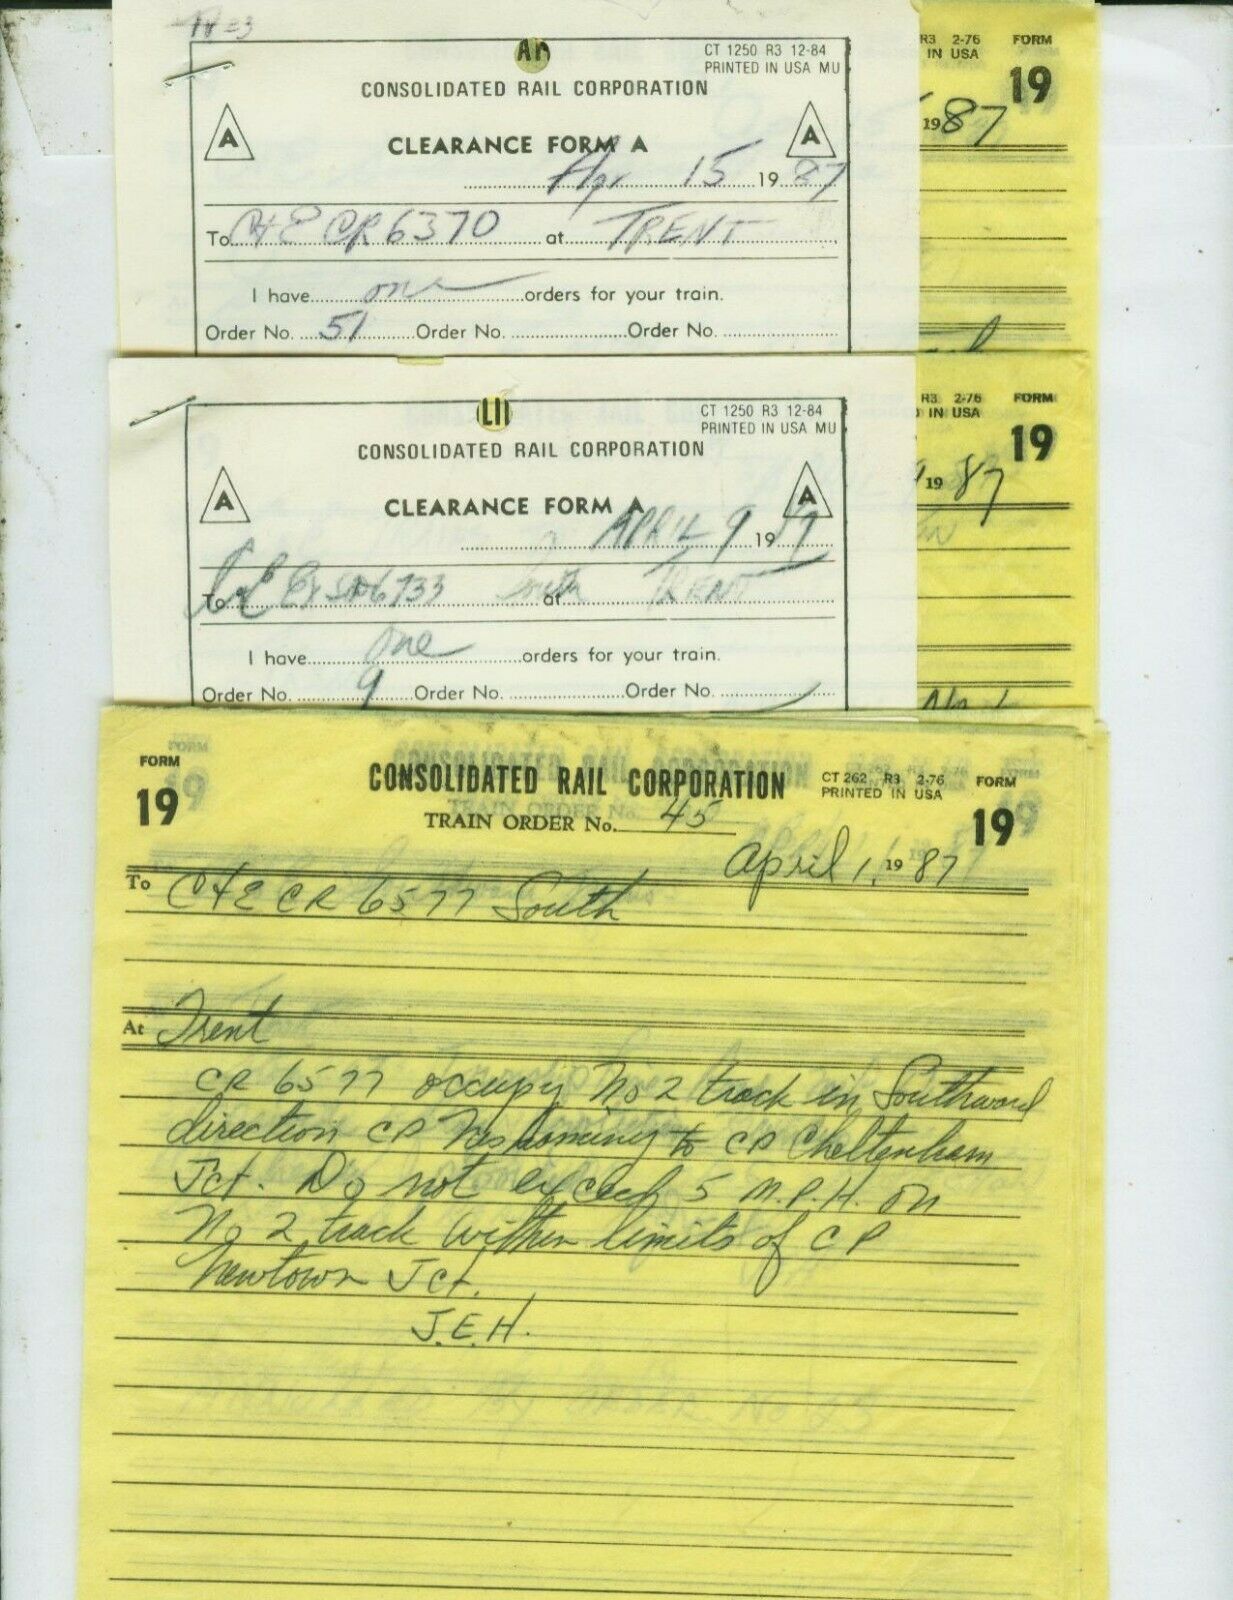 CT 1250 R3 12-84
PRINTED IN USA MU
CONSOLIDATED RAIL CORPORATION
A CLEARANCE FORM A A
Apr 15 1987
To C+E CR 6370 at TRENT
I have one orders for your train.
Order No. 51 Order No. Order No.
R3 2-76 FORM
IN USA 19
1987
CT 1250 R3 12-84
PRINTED IN USA MU
CONSOLIDATED RAIL CORPORATION
A CLEARANCE FORM A A
APRIL 9 19
To 6733 South at TRENT
I have one orders for your train.
Order No. 9 Order No. Order No.
R3 2-76 FORM
IN USA 19
1987
FORM 19
CONSOLIDATED RAIL CORPORATION
CT 262 R3 2-76
PRINTED IN USA
FORM 19
TRAIN ORDER No. 45
April 1, 1987
To C+E CR 6577 South
At Trent
CR 6577 occupy No 2 track in Southward
direction CP Neshaminy to CP Cheltenham
Jct. Do not exceed 5 M.P.H. on
No 2 track within limits of CP
Newtown Jct.
J.E.H.